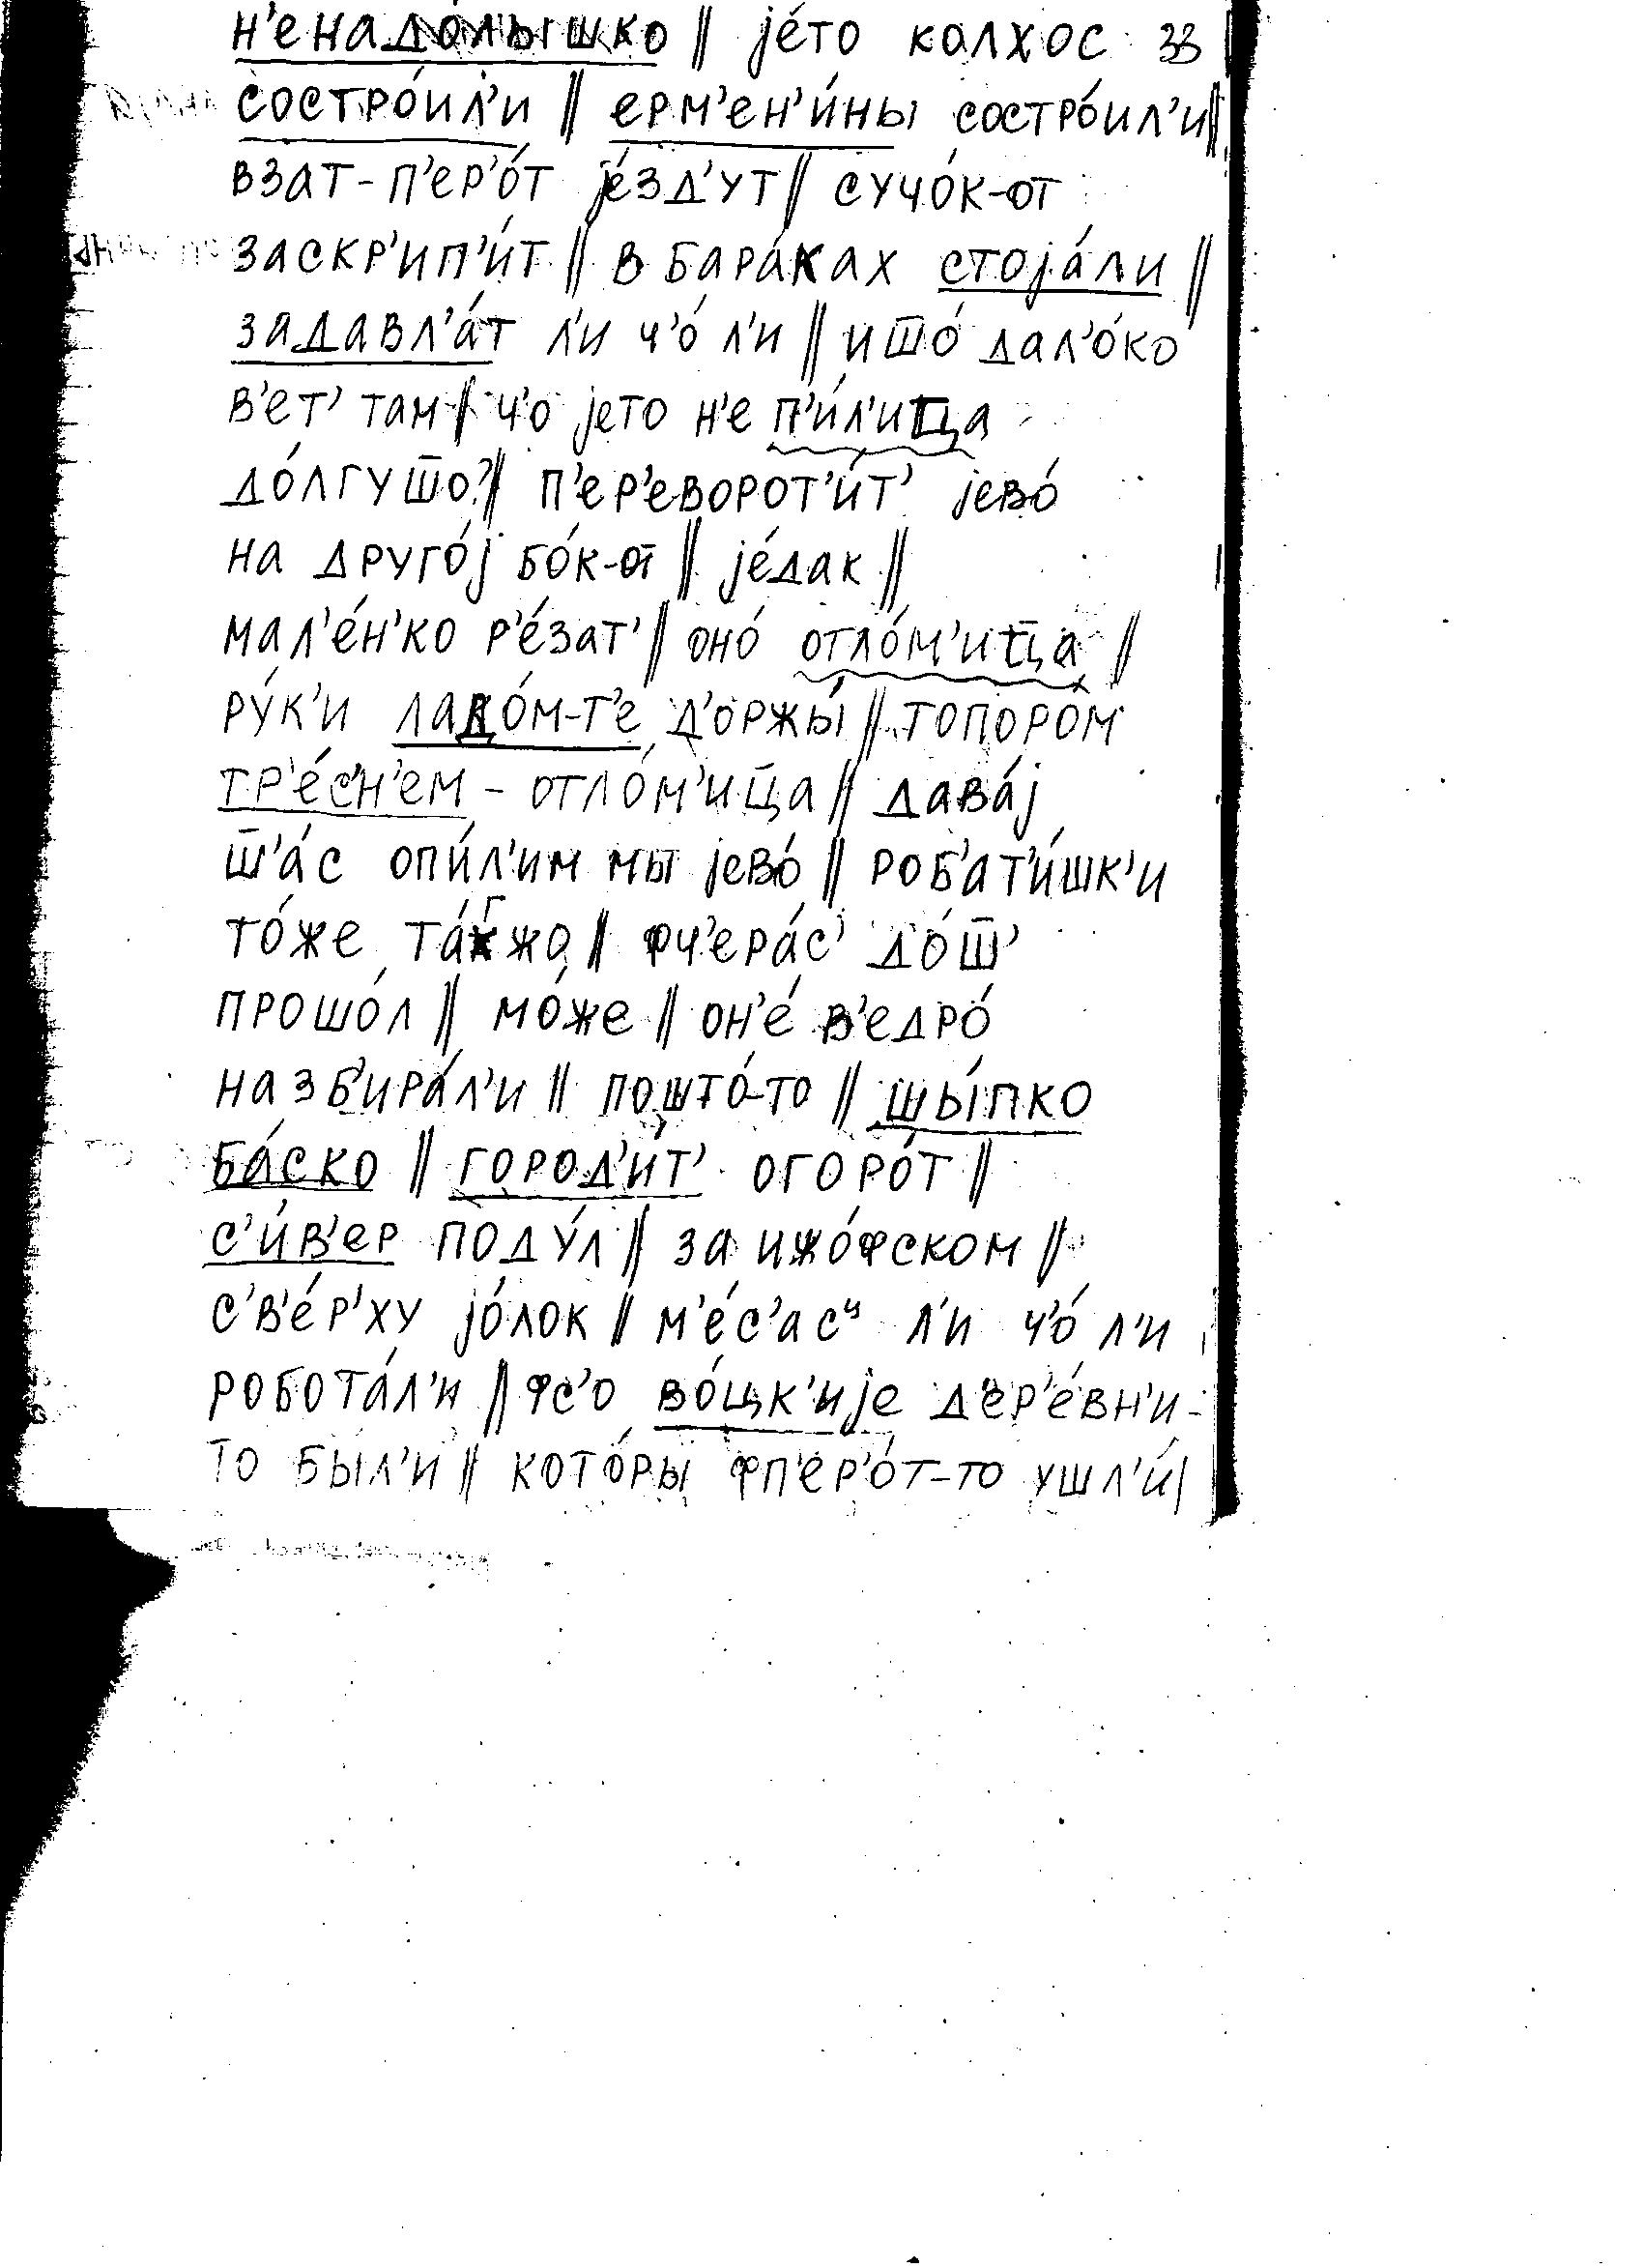 н'енадо́лышко ‖ jе́то колхос 33
состро́ил'и ‖ ерм'ен'и́ны состро́ил'и ‖
взат-п'ер'о́т jе́зд'ут ‖ сучо́к-от
заскр'ип'и́т ‖ в бара́ках стоjа́ли ‖
задавл'а́т л'и ч'о́ л'и ‖ иш̅о́ дал'о́ко
в'ет' там ‖ ч'о jето н'е п'и́л'иц̅а
до́лгуш̅о? ‖ п'ер'еворот'и́т' jево́
на друго́j бо́к-от ‖ jе́дак ‖
мал'е́н'ко р'е́зат' ‖ оно́ отло́м'иц̅а ‖
ру́к'и ладо́м-т'е д'оржы́ ‖ топоро́м
тр'е́с'н'ем - отло́м'иц̅а ‖ дава́j
ш̅'а́с опи́л'им мы jево́ ‖ роб'ат'и́шк'и
то́же та́гжо ‖ фч'ера́с' до́ш̅'
прошо́л ‖ мо́же ‖ он'е́ в'едро́
назб'ира́л'и ‖ пошто́-то ‖ шы́пко
ба́ско ‖ город'и́т' огоро́т ‖
с'и́в'ер поду́л ‖ за ижо́фском ‖
с'в'е́р'ху jо́лок ‖ м'е́с'асц л'и ч'о́ л'и
робота́л'и ‖ фс'о во́цк'иjе д'ер'е́вн'и-
то был'и ‖ кото́ры фп'ер'о́т-то ушл'и́ |